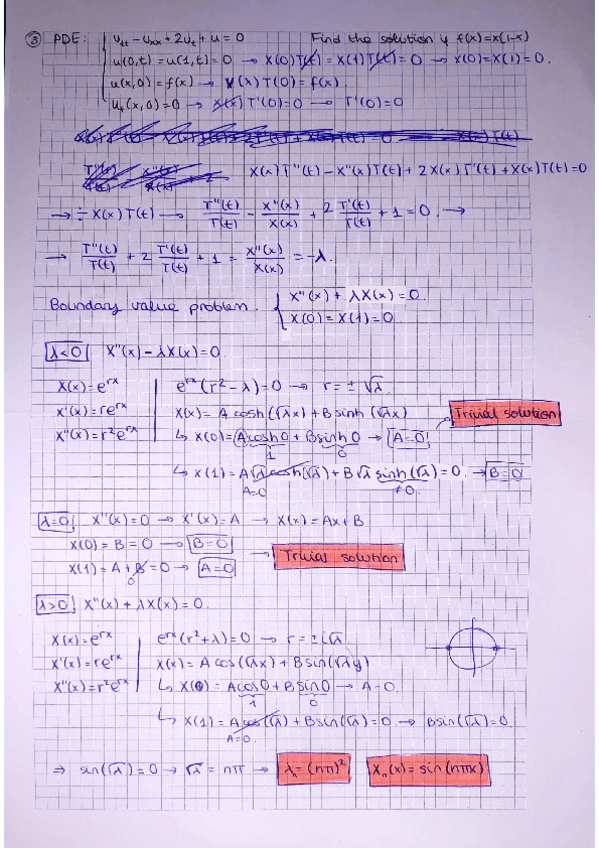 ③ PDE: u_tt - u_xx + 2u_t + u = 0 Find the solution if f(x) = x(1-x)
u(0,t) = u(1,t) = 0 → X(0)T(t) = X(1)T(t) = 0 → X(0) = X(1) = 0.
u(x,0) = f(x) → X(x)T(0) = f(x)
u_t(x,0) = 0 → X(x)T'(0) = 0 → T'(0) = 0
X(x)T''(t) - X''(x)T(t) + 2X(x)T'(t) + X(x)T(t) = 0
→ ÷ X(x)T(t) → T''(t)/T(t) - X''(x)/X(x) + 2 T'(t)/T(t) + 1 = 0. →
→ T''(t)/T(t) + 2 T'(t)/T(t) + 1 = X''(x)/X(x) = -λ.
Boundary value problem. { X''(x) + λX(x) = 0.
X(0) = X(1) = 0.
λ<0 X''(x) - λX(x) = 0.
X(x) = e^rx | e^rx(r² - λ) = 0 → r = ± √λ.
X'(x) = re^rx | X(x) = A cosh(√λx) + B sinh(√λx) Trivial solution
X''(x) = r²e^rx | ↳ X(0) = A cosh 0 + B sinh 0 → A=0
1 0
↳ X(1) = A√λ cosh(√λ) + B√λ sinh(√λ) = 0. → B=0
A=0 ≠0.
λ=0 X''(x) = 0 → X'(x) = A → X(x) = Ax + B
X(0) = B = 0 → B=0
→ Trivial solution
X(1) = A + B = 0 → A=0
0
λ>0 X''(x) + λX(x) = 0.
X(x) = e^rx | e^rx(r² + λ) = 0 → r = ± i√λ.
X'(x) = re^rx | X(x) = A cos(√λx) + B sin(√λy)
X''(x) = r²e^rx | ↳ X(0) = A cos 0 + B sin 0 → A=0.
1 0
↳ X(1) = A cos(√λ) + B sin(√λ) = 0. → B sin(√λ) = 0.
A=0.
⇒ sin(√λ) = 0 → √λ = nπ → λ_n = (nπ)² X_n(x) = sin(nπx)